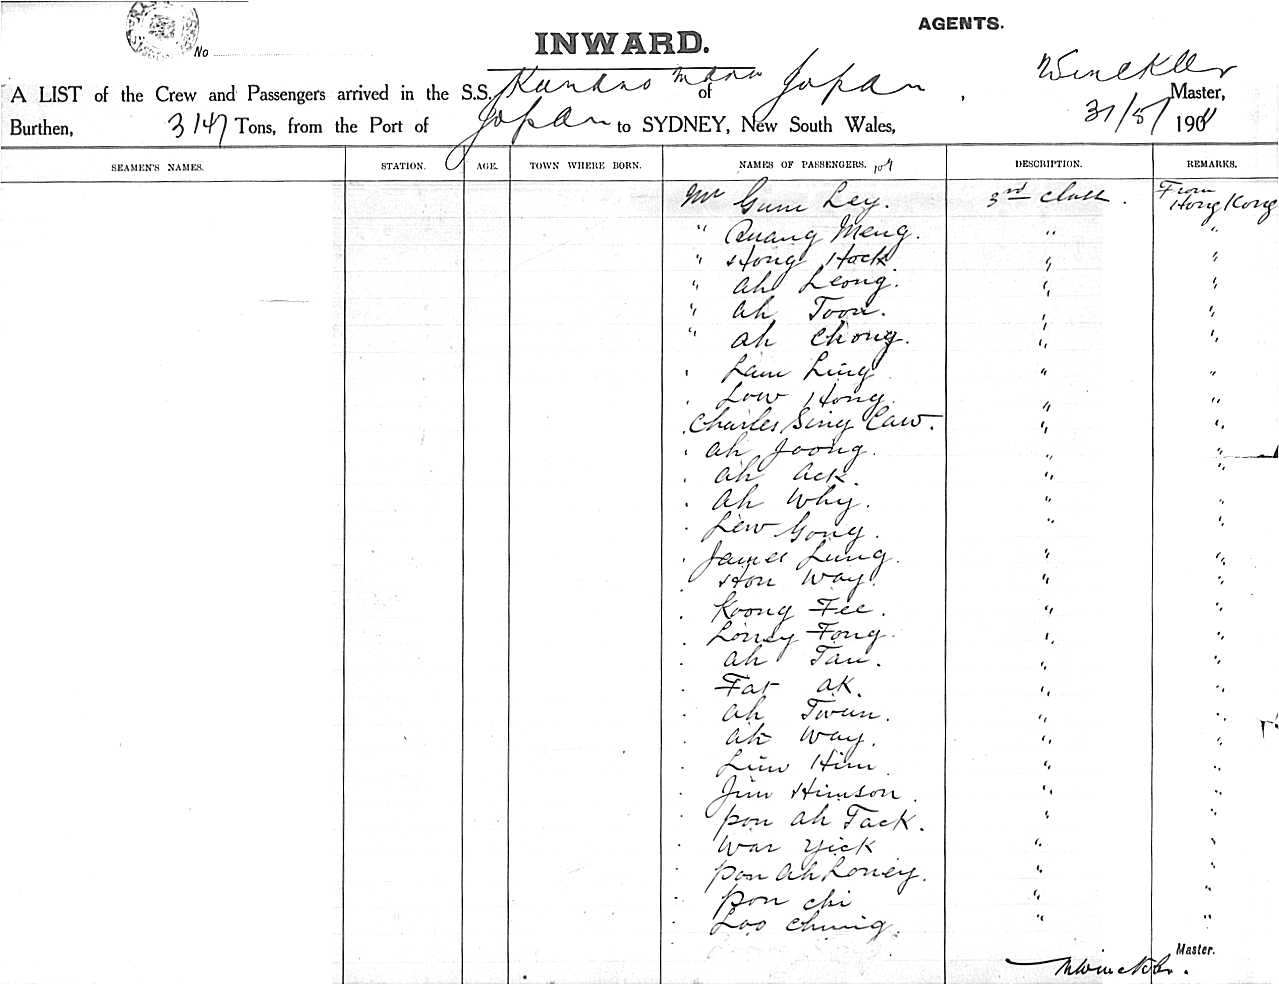 AGENTS.
No
INWARD.
A LIST of the Crew and Passengers arrived in the S.S. Kumano Maru of Japan, Winckler Master,
Burthen, 3147 Tons, from the Port of Japan to SYDNEY, New South Wales, 31/5/ 190
SEAMEN'S NAMES. STATION. AGE. TOWN WHERE BORN. NAMES OF PASSENGERS. DESCRIPTION. REMARKS.
Mr Gum Ley. 3rd Class. From Hong Kong
" Quang Meng. " "
" Hong Hock " "
" Ah Leong. " "
" Ah Toon. " "
" Ah Chong. " "
Lam Ling " "
Low Hong. " "
Charles Sing Caw. " "
Ah Joong. " "
Ah Ack. " "
Ah Why. " "
Lew Gong. " "
James Lung. " "
Hon Way. " "
Koong Fee. " "
Loney Fong. " "
Ah Tan. " "
Fat Ak. " "
Ah Twun. " "
Ah Way. " "
Lim Him " "
Jim Himson. " "
Pon Ah Tack. " "
War Yick " "
Pon Ah Loney. " "
Pon Chi " "
Loo Chung. " "
Master.
Winckler.